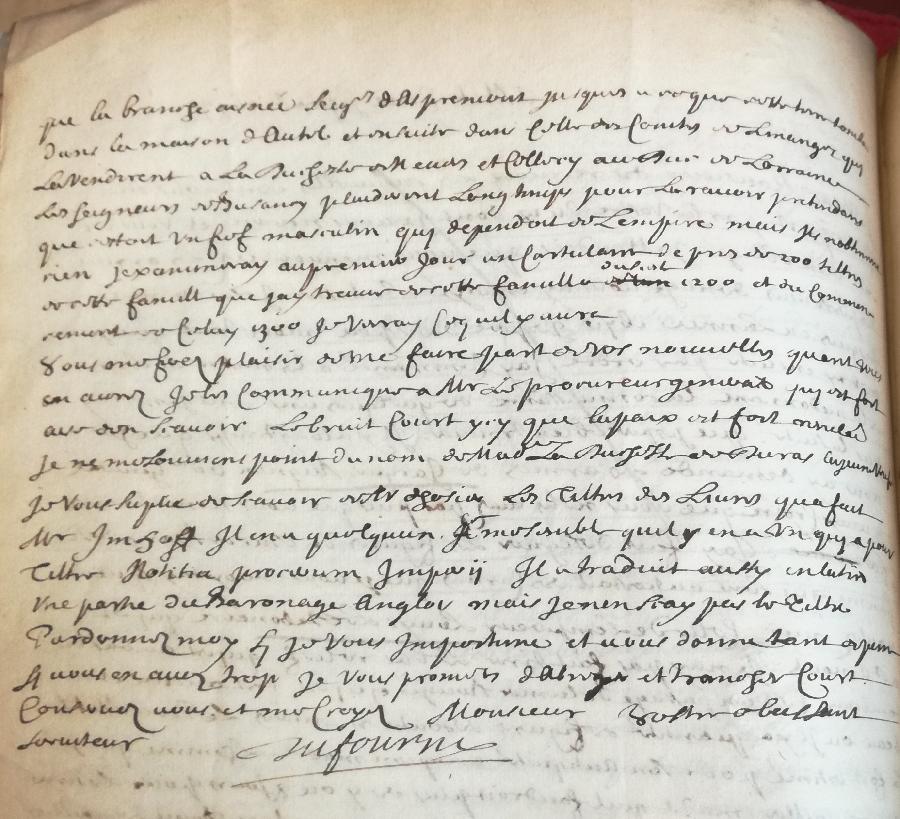 que la branche aisnée Seigrs d'Aspremont jusques a ce que cette terre tomba
dans la maison d'Autel et ensuite dans Celle des Comtes de Linange qui
La Vendirent a La Duchesse et Collory au Duc de Lorraine
Les Seigneurs de Busancy plaiderent Longtemps pour La ravoir pretendans
que c'estoit Un fief masculin quy dependoit de Lempire mais Ils nobtinrent
rien Jexamineray au premier Jour un Cartulaire de pres de 200 tiltres
de cette famille que jay treuve de cette famille 1200 et du Commen
cement de Celuy 1300 Je Verray Cequil y aura
Vous me ferez plaisir de me faire part de vos nouvelles quant vous
en aurez Je les Communique a Mr Le procureur general quy est fort
aise den Scavoir Le bruit Court ycy que la paix est fort
Je ne me souviens point du nom de Made La Duchesse de Duras
Je Vous suplie de Scavoir de Les Tiltres des Livres qua fait
Mr Imhoff Il en a quelquun Il me semble quil y en a Un quy a pour
Tiltre Notitia procerum Imperij Il a traduit aussy en latin
Une partie du Baronage Anglois mais Je nen Scay pas le Tiltre
Pardonnez moy Sy Je Vous Importune et vous donne tant de peine
Sy vous en avez trop Je vous promets et trancher Court
Conservez vous et me Croyez Monsieur Vostre obeissant
serviteur Dufourny